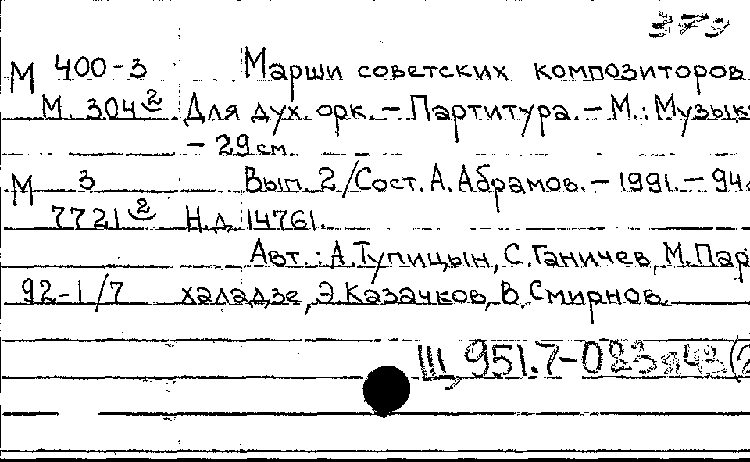 379
М 400-3 Марши советских композиторов
М. 304 2 Для дух. орк. – Партитура. – М.: Музык
– 29 см.
М 3 Вып. 2/Сост. А. Абрамов. – 1991. – 94
7721 2 Н.д. 14761.
Авт.: А.Тупицын, С.Ганичев, М.Пар
92-1/7 халадзе, Э.Казачков, В.Смирнов.
Щ 951.7-083я43(2